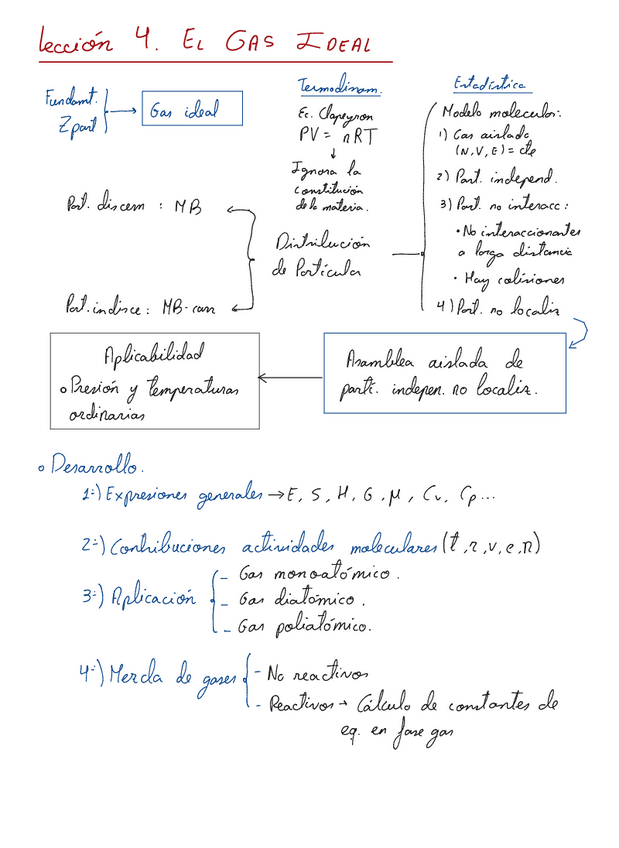 Lección 4. EL GAS IDEAL
Fundamt.
Z part
Gas ideal
Termodinam.
Ec. Clapeyron
PV = nRT
Ignora la
constitución
de la materia.
Estadística
Modelo molecular:
1) Gas aislado
(N,V,E) = cte
2) Part. independ.
3) Part. no interacc:
• No interaccionantes
a larga distancia
• Hay colisiones
4) Part. no localiz
Part. discern : MB
Part. indisce : MB-corr
Distribución
de Partículas
Asamblea aislada de
partíc. indepen. no localiz.
Aplicabilidad
o Presión y temperaturas
ordinarias
o Desarrollo.
1º) Expresiones generales → E, S, H, G, μ, Cv, Cp...
2º) Contribuciones actividades moleculares (t, r, v, e, n)
3º) Aplicación
- Gas monoatómico.
- Gas diatómico.
- Gas poliatómico.
4º) Mezcla de gases
- No reactivos
- Reactivos → Cálculo de constantes de
eq. en fase gas